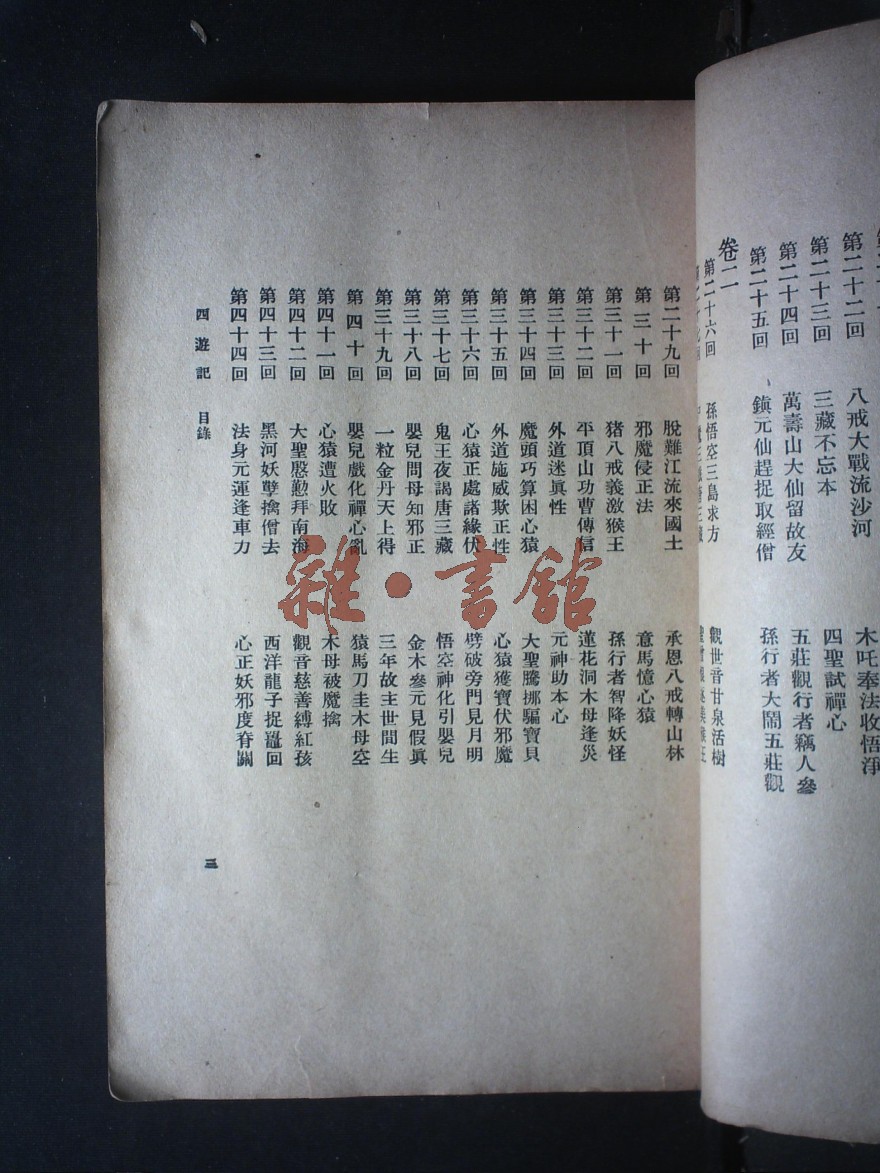 第二十二回 八戒大戰流沙河 木吒奉法收悟淨
第二十三回 三藏不忘本 四聖試禪心
第二十四回 萬壽山大仙留故友 五莊觀行者竊人參
第二十五回 鎮元仙趕捉取經僧 孫行者大鬧五莊觀
卷二
第二十六回 孫悟空三島求方 觀世音甘泉活樹
第二十九回 脫難江流來國土 承恩八戒轉山林
第三十回 邪魔侵正法 意馬憶心猿
第三十一回 猪八戒義激猴王 孫行者智降妖怪
第三十二回 平頂山功曹傳信 蓮花洞木母逢災
第三十三回 外道迷眞性 元神助本心
第三十四回 魔頭巧算困心猿 大聖騰挪騙寶貝
第三十五回 外道施威欺正性 心猿獲寶伏邪魔
第三十六回 心猿正處諸緣伏 劈破旁門見月明
第三十七回 鬼王夜謁唐三藏 悟空神化引嬰兒
第三十八回 嬰兒問母知邪正 金木參元見假眞
第三十九回 一粒金丹天上得 三年故主世間生
第四十回 嬰兒戲化禪心亂 猿馬刀圭木母空
第四十一回 心猿遭火敗 木母被魔擒
第四十二回 大聖慇懃拜南海 觀音慈善縛紅孩
第四十三回 黑河妖孽擒僧去 西洋龍子捉鼉回
第四十四回 法身元運逢車力 心正妖邪度脊關
西遊記 目錄
三
雜·書館